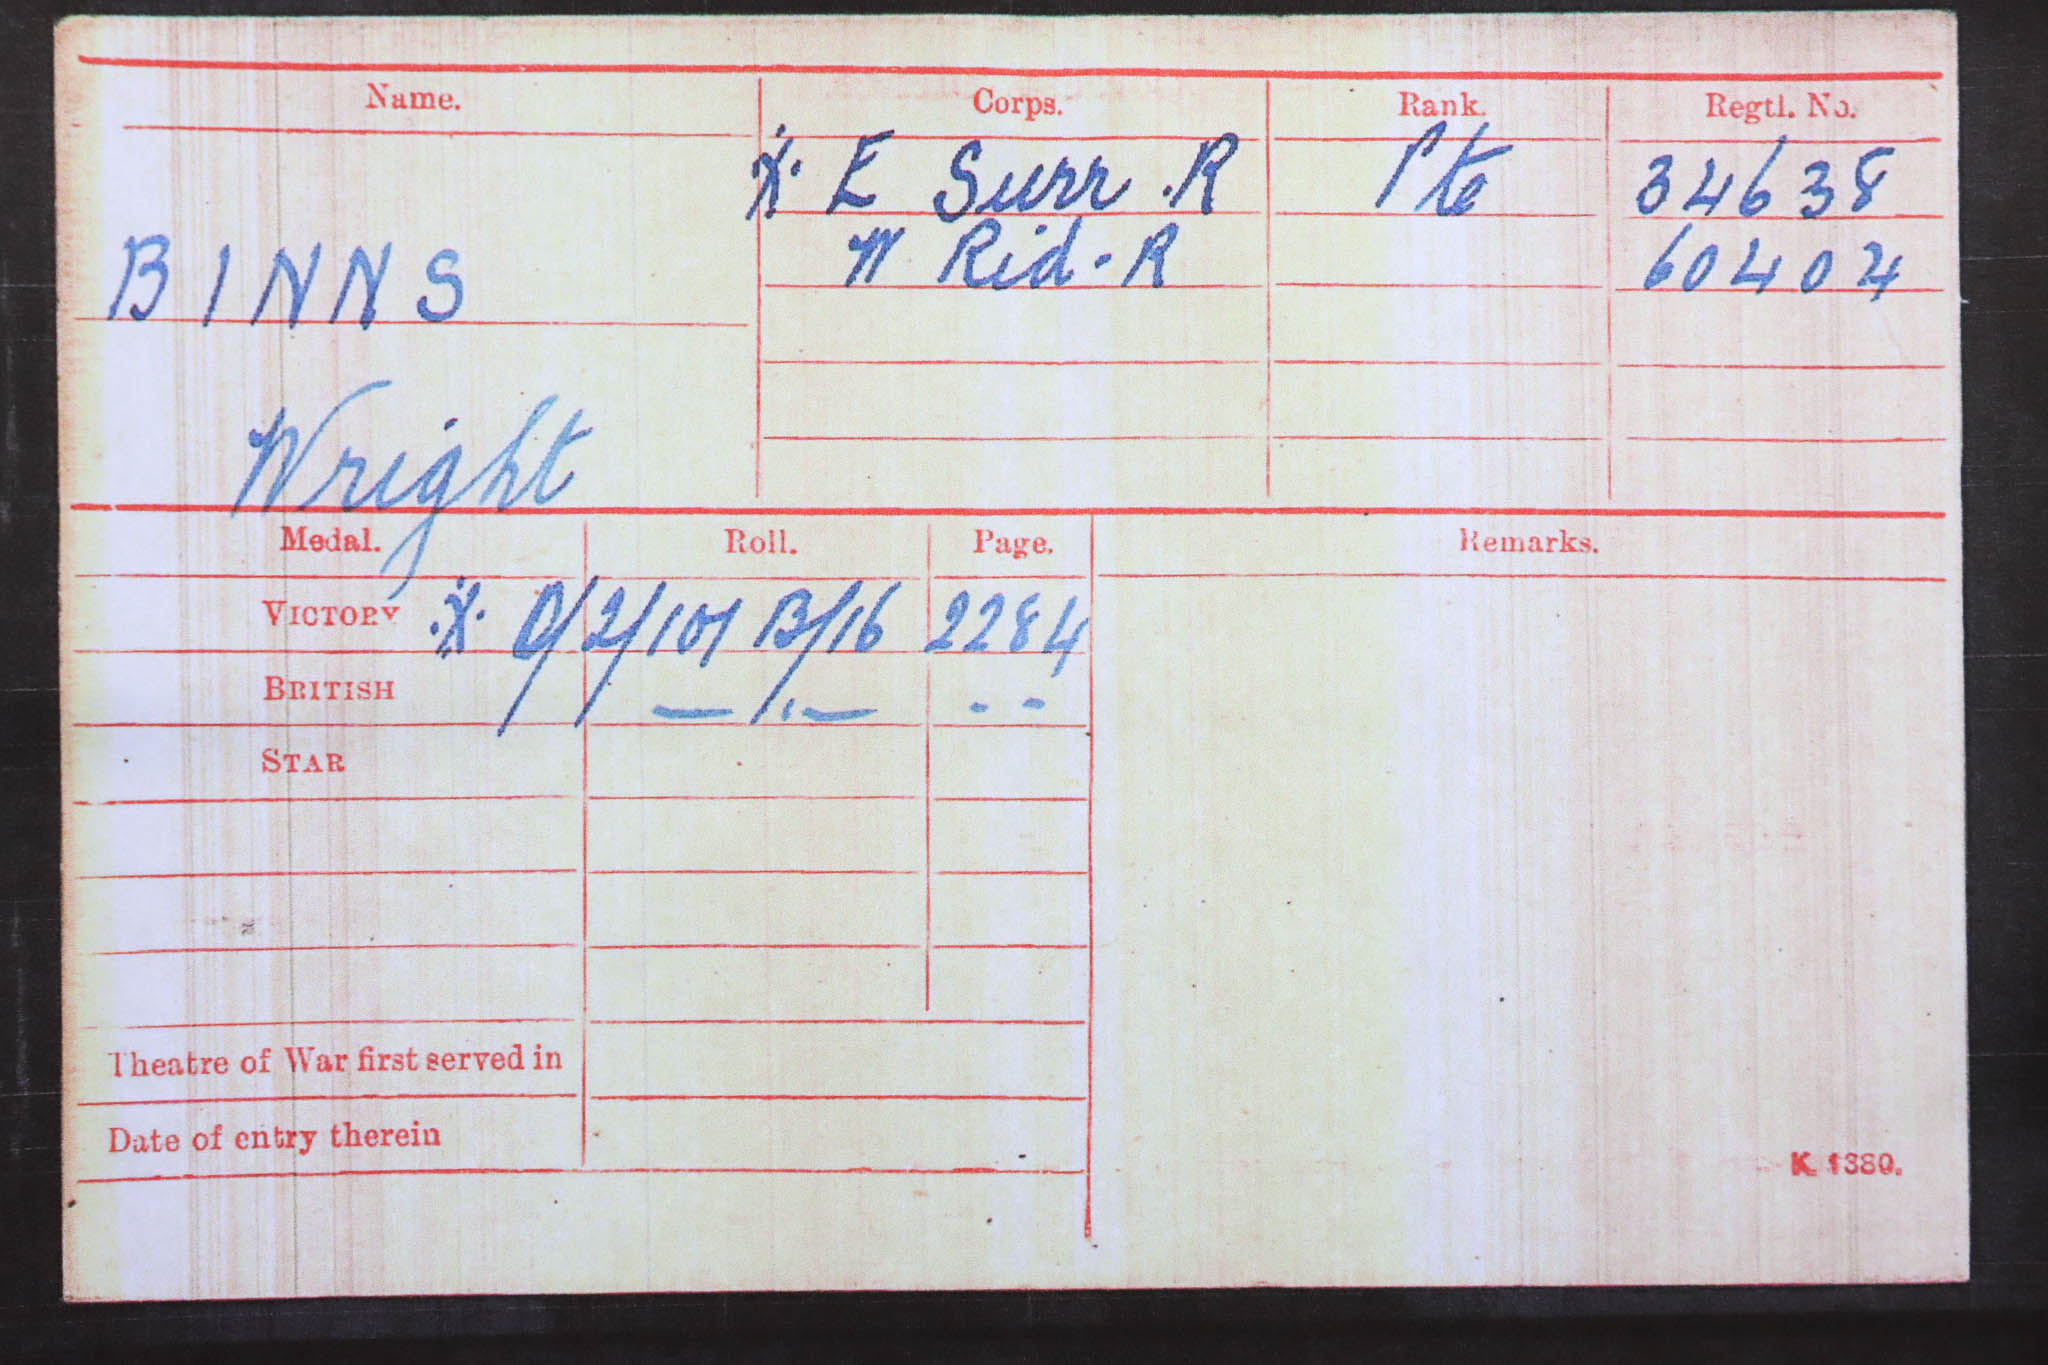 Name. Corps. Rank. Regtl. No.
E Surr . R Pte 34638
BINNS W Rid. R 60404
Wright
Medal. Roll. Page. Remarks.
VICTORY 0/2/101 B/16 2284
BRITISH
STAR
Theatre of War first served in
Date of entry therein
K 1380.